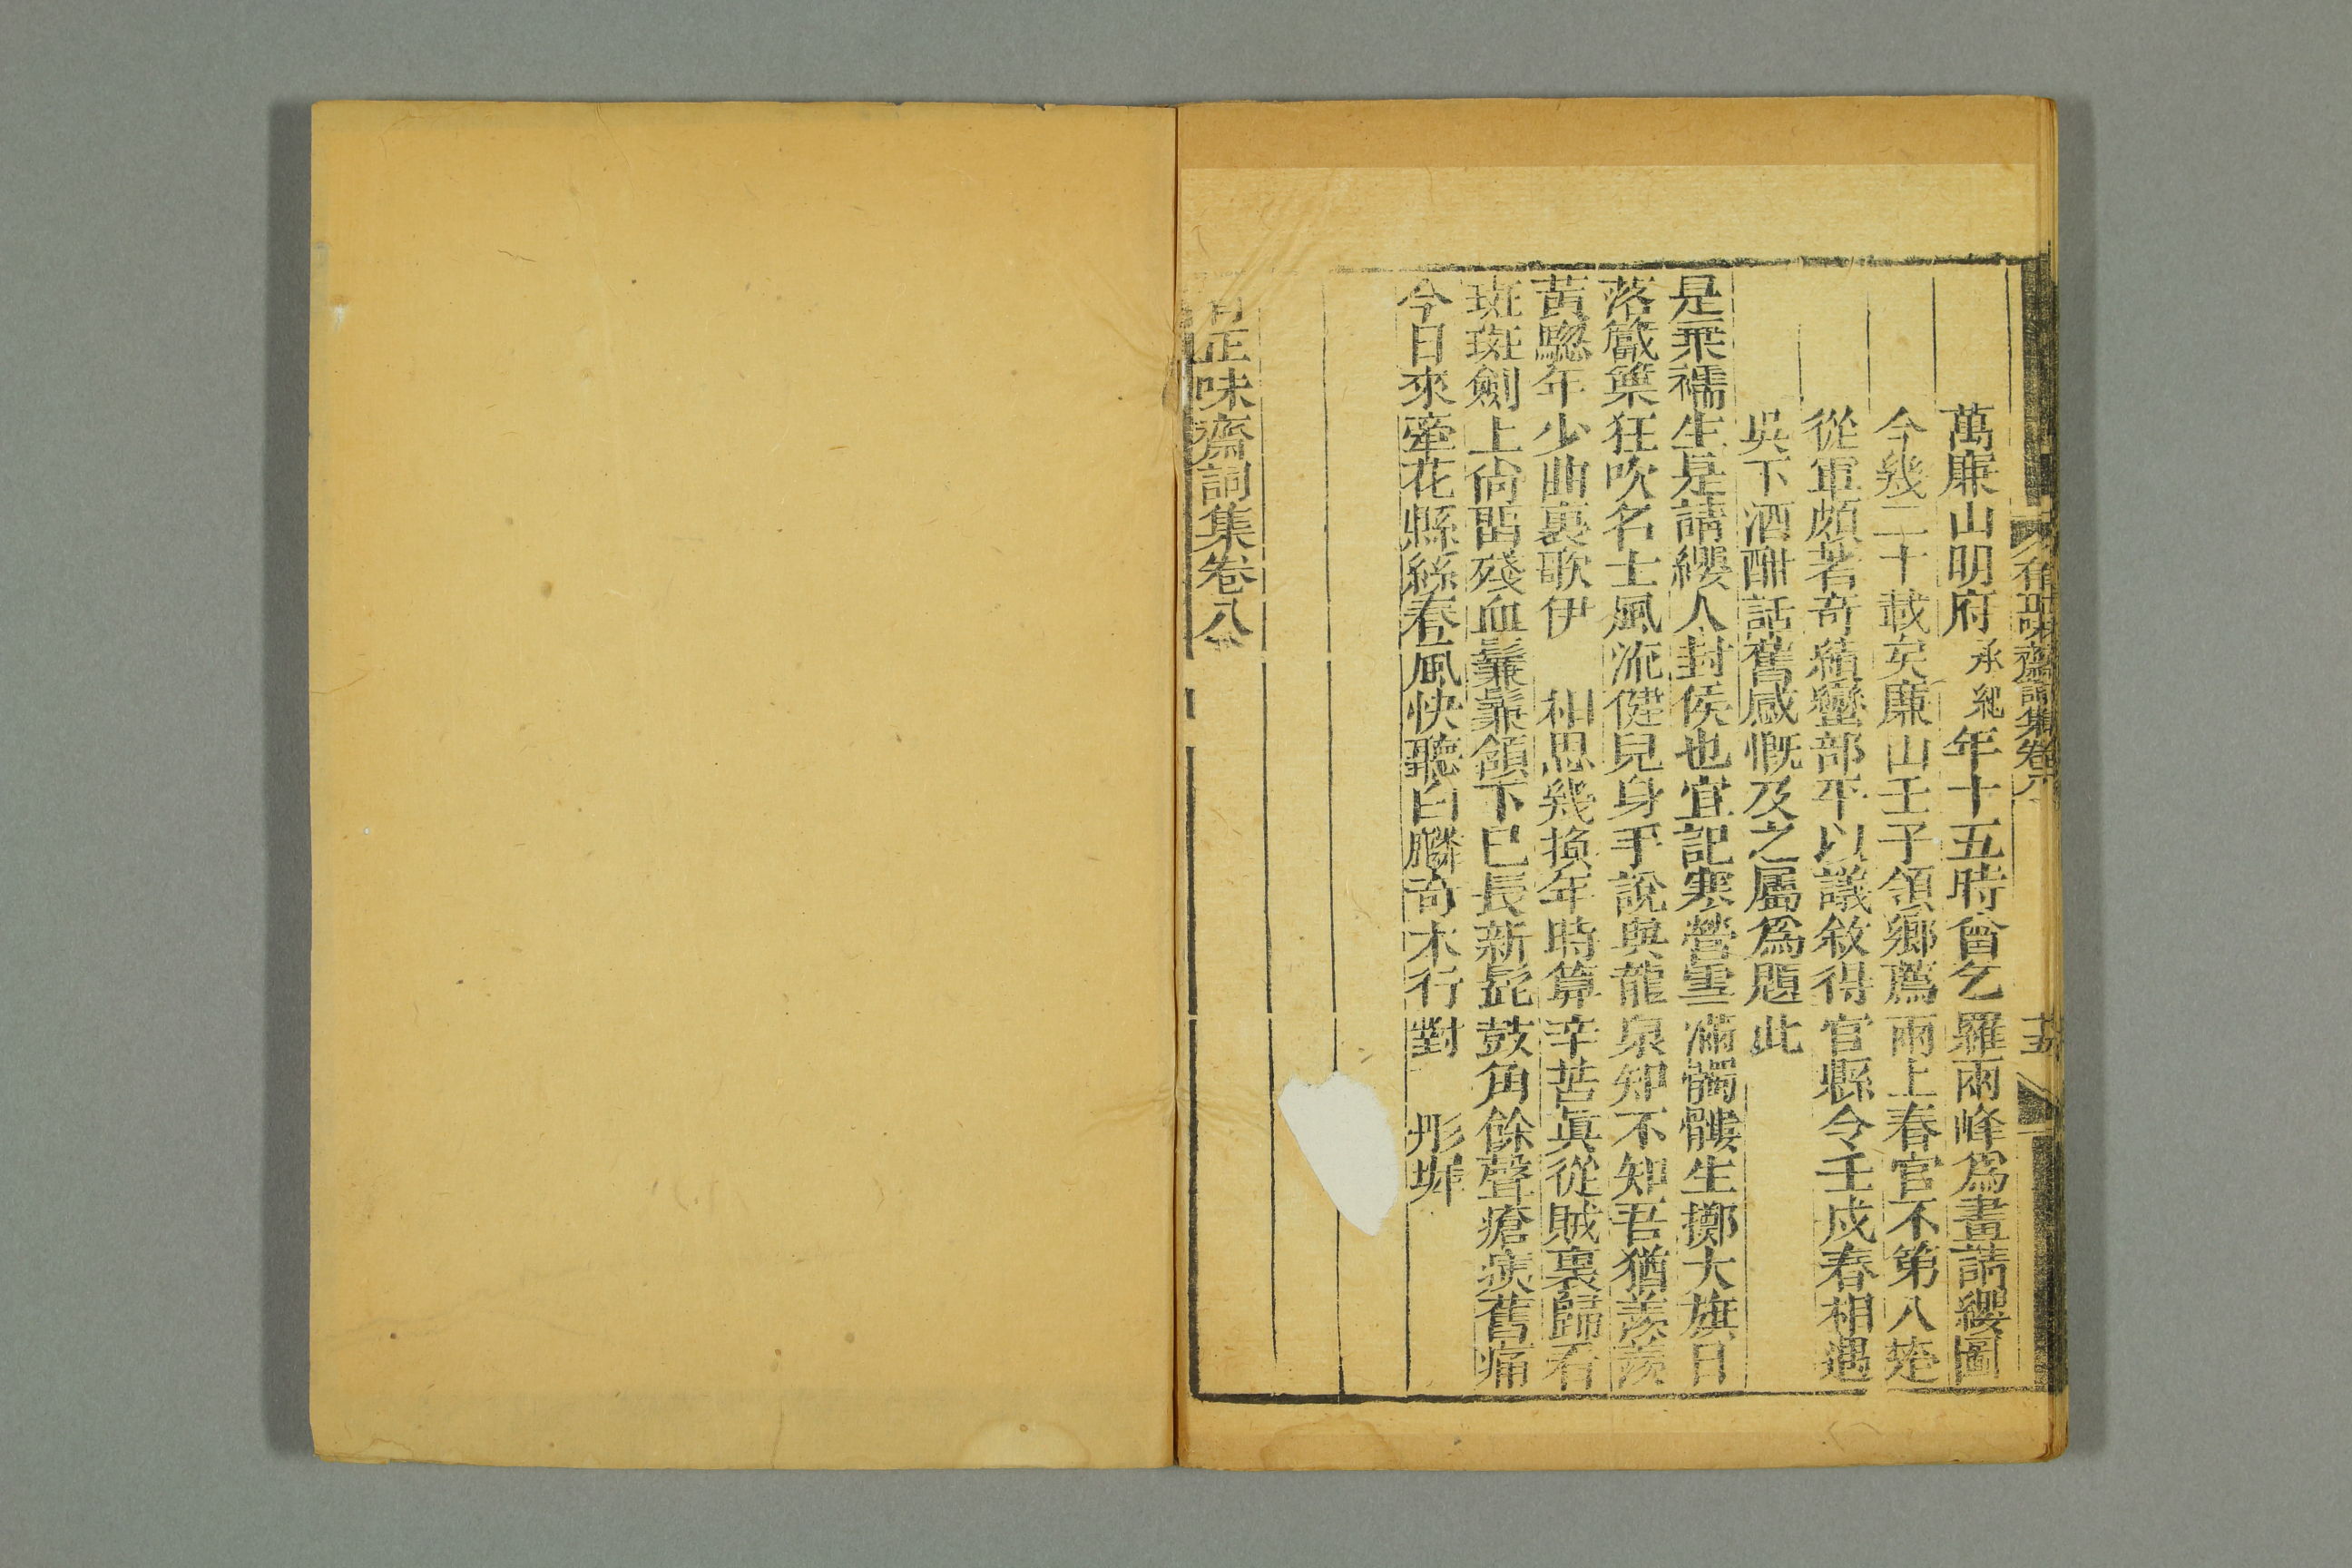 有正味齋詞集卷八
萬廉山明府承紀年十五時曾乞羅兩峰爲畫請纓圖
今幾二十載矣廉山壬子領鄉薦兩上春官不第入楚
從軍頗著奇績蠻部平以議敘得官縣令壬戌春相遇
吳下酒酣話舊感慨及之屬爲題此
是棄繻生是請纓人封侯也宜記寒營雪滿髑髏生擲大旗日
落觱篥狂吹名士風流健兒身手說與龍泉知不知吾猶羨羨
黃驄年少曲裏歌伊 相思幾換年時算辛苦眞從賊裏歸看
斑斑劍上尙留殘血鬑鬑頷下已長新髭鼓角餘聲瘡痍舊痛
今日來牽花縣絲春風快聽白麟奇木行對 彤墀
有正味齋詞集卷八